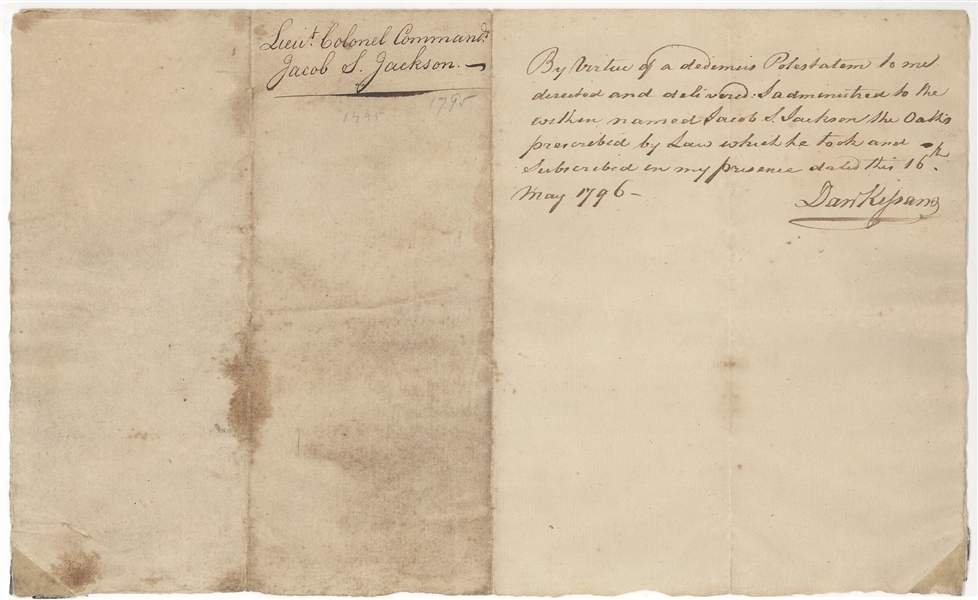 Lieut. Colonel Commandt.
Jacob S. Jackson.
1795
1795
By Virtue of a dedimus Potestatem to me
directed and delivered: I administred to the
within named Jacob S. Jackson the Oaths
prescribed by Law which he took and
Subscribed in my presence dated this 16th.
May 1796